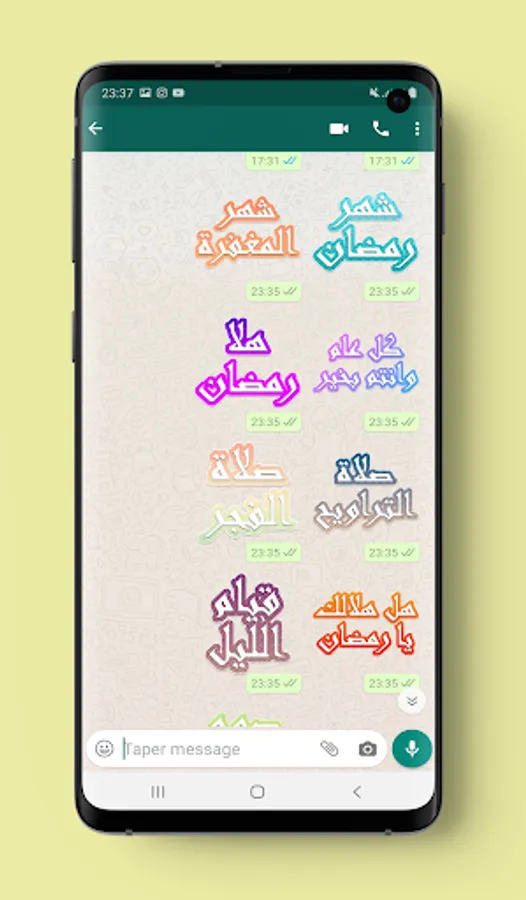 23:37
17:31
17:31
شهر
رمضان
شهر
المغفرة
23:35
23:35
كل عام
وانتم بخير
هلا
رمضان
23:35
23:35
صلاة
التراويح
صلاة
الفجر
23:35
23:35
هل هلالك
يا رمضان
قيام
الليل
23:35
23:35
Taper message